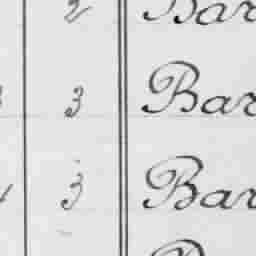 2 Bar
3 Bar
3 Bar